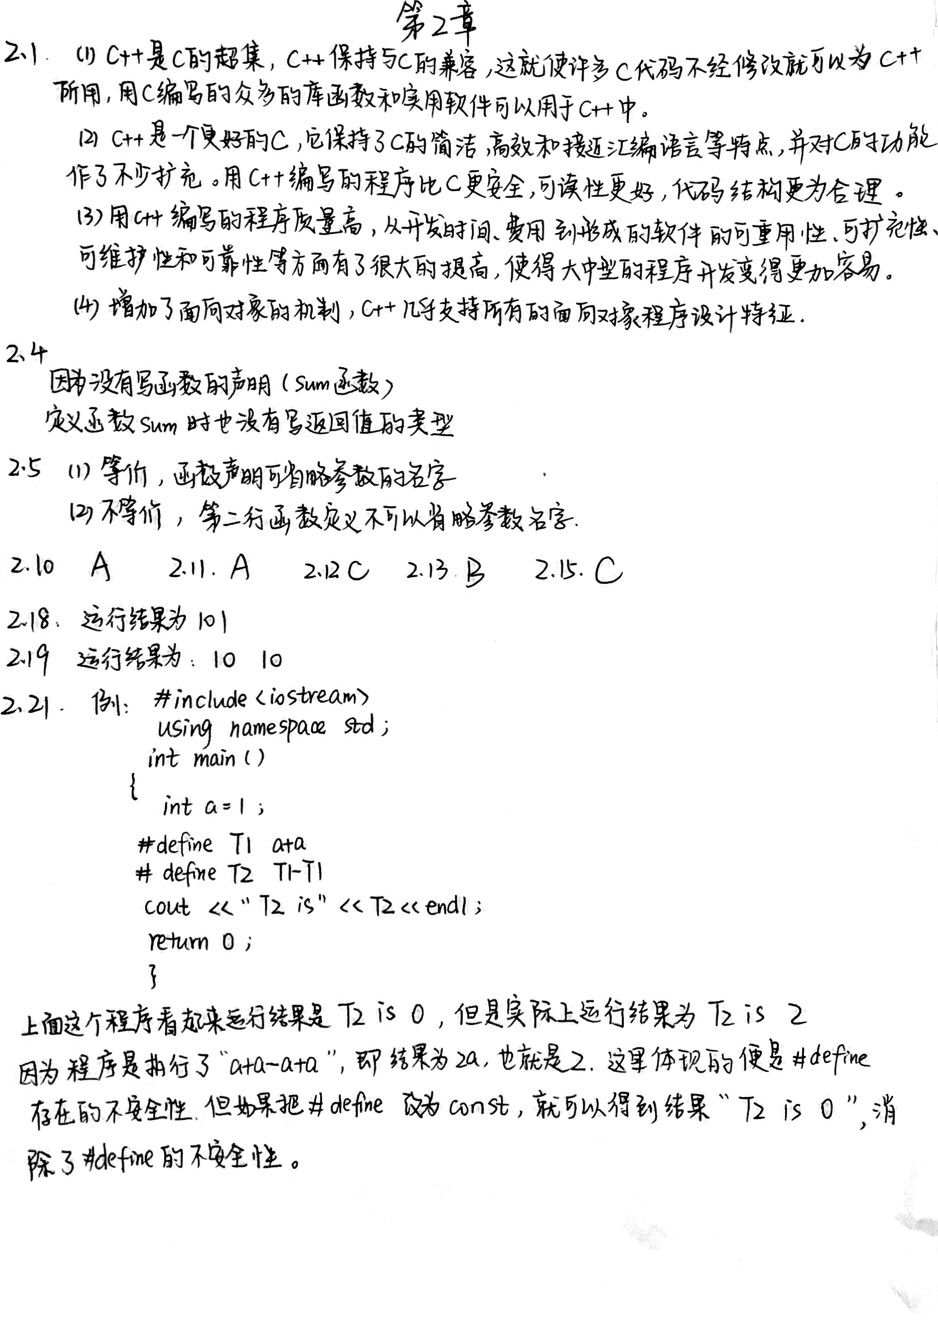 第2章
2.1. (1) C++是C的超集，C++保持与C的兼容，这就使许多C代码不经修改就可以为C++
所用，用C编写的众多的库函数和实用软件可以用于C++中。
(2) C++是一个更好的C，它保持了C的简洁，高效和接近汇编语言等特点，并对C的功能
作了不少扩充。用C++编写的程序比C更安全，可读性更好，代码结构更为合理。
(3) 用C++编写的程序质量高，从开发时间、费用到形成的软件的可重用性、可扩充性、
可维护性和可靠性等方面有了很大的提高，使得大中型的程序开发变得更加容易。
(4) 增加了面向对象的机制，C++几乎支持所有的面向对象程序设计特征.
2.4
因为没有写函数的声明（sum函数）
定义函数sum时也没有写返回值的类型
2.5 (1) 等价，函数声明可省略参数的名字
(2) 不等价，第二行函数定义不可以省略参数名字.
2.10 A 2.11. A 2.12 C 2.13. B 2.15. C
2.18. 运行结果为 101
2.19 运行结果为：10 10
2.21. 例: #include <iostream>
using namespace std;
int main()
{
int a=1;
#define T1 a+a
# define T2 T1-T1
cout << "T2 is" << T2<<endl;
return 0;
}
上面这个程序看起来运行结果是 T2 is 0，但是实际上运行结果为 T2 is 2
因为程序是执行了“a+a-a+a”，即结果为2a，也就是2. 这里体现的便是#define
存在的不安全性. 但如果把#define 改为const，就可以得到结果“T2 is 0”，消
除了#define的不安全性。